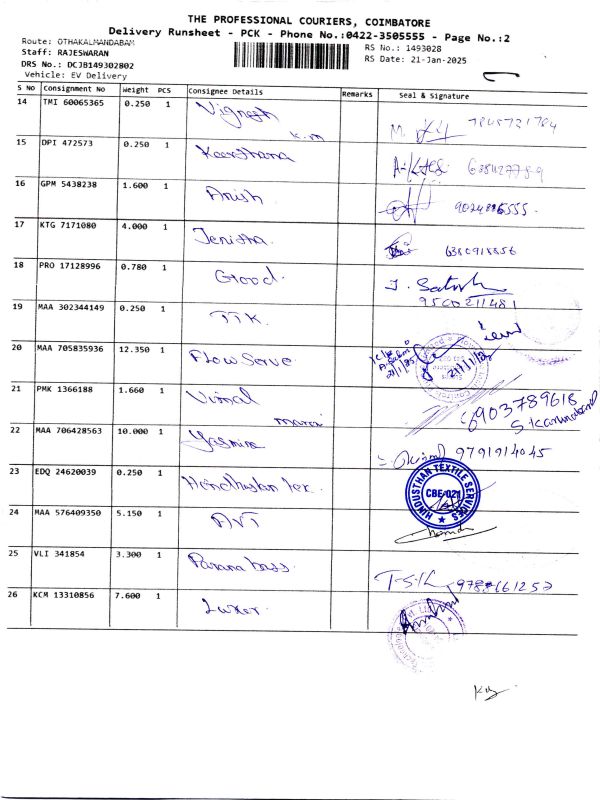 THE PROFESSIONAL COURIERS, COIMBATORE
Delivery Runsheet - PCK - Phone No.:0422-3505555 - Page No.:2
Route: OTHAKALMANDABAM
RS No.: 1493028
Staff: RAJESWARAN
RS Date: 21-Jan-2025
DRS No.: DCJB149302802
Vehicle: EV Delivery
S No Consignment No Weight PCS Consignee Details Remarks Seal & Signature
14 TMI 60065365 0.250 1 Vignesh K.M
15 DPI 472573 0.250 1 Keerthana
16 GPM 5438238 1.600 1 Anish
17 KTG 7171080 4.000 1 Jenisha 6380918856
18 PRO 17128996 0.780 1 Good J. Satosh
9500211481
19 MAA 302344149 0.250 1 TTK
20 MAA 705835936 12.350 1 Flow Serve
21/1/25
21 PMK 1366188 1.660 1 Vimal 6903789618
22 MAA 706428563 10.000 1 Yasmine 9791914045
23 EDQ 24620039 0.250 1 Hindhustan Tex. HINDUSTHAN TEXTILE SERVICES CBE-021
24 MAA 576409350 5.150 1 AVT
25 VLI 341854 3.300 1 Parana bass T-S-K
26 KCM 13310856 7.600 1 Luker